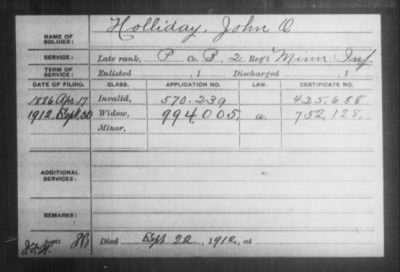 Holliday, John O.
NAME OF SOLDIER:
SERVICE: Late rank, P Co. B, 2 Reg't Minn Inf.
TERM OF SERVICE: Enlisted , 1 Discharged , 1
DATE OF FILING. CLASS. APPLICATION NO. LAW. CERTIFICATE NO.
1886 Apr. 17 Invalid, 570.239 425.688
1912. Sept. 30 Widow, 994005, 752,128.
Minor,
ADDITIONAL SERVICES:
REMARKS:
Died Sept 22, 1912, at